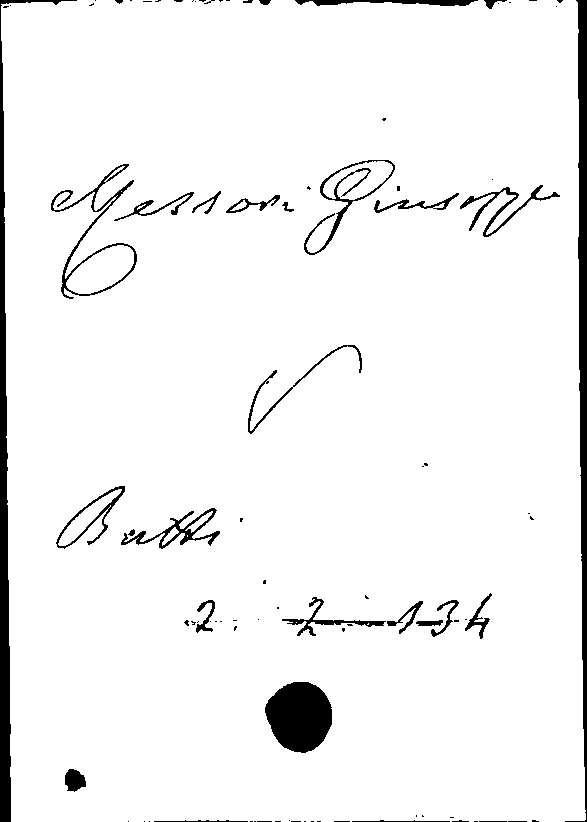 Messori Giuseppe
V
Butti
2. 2. 134